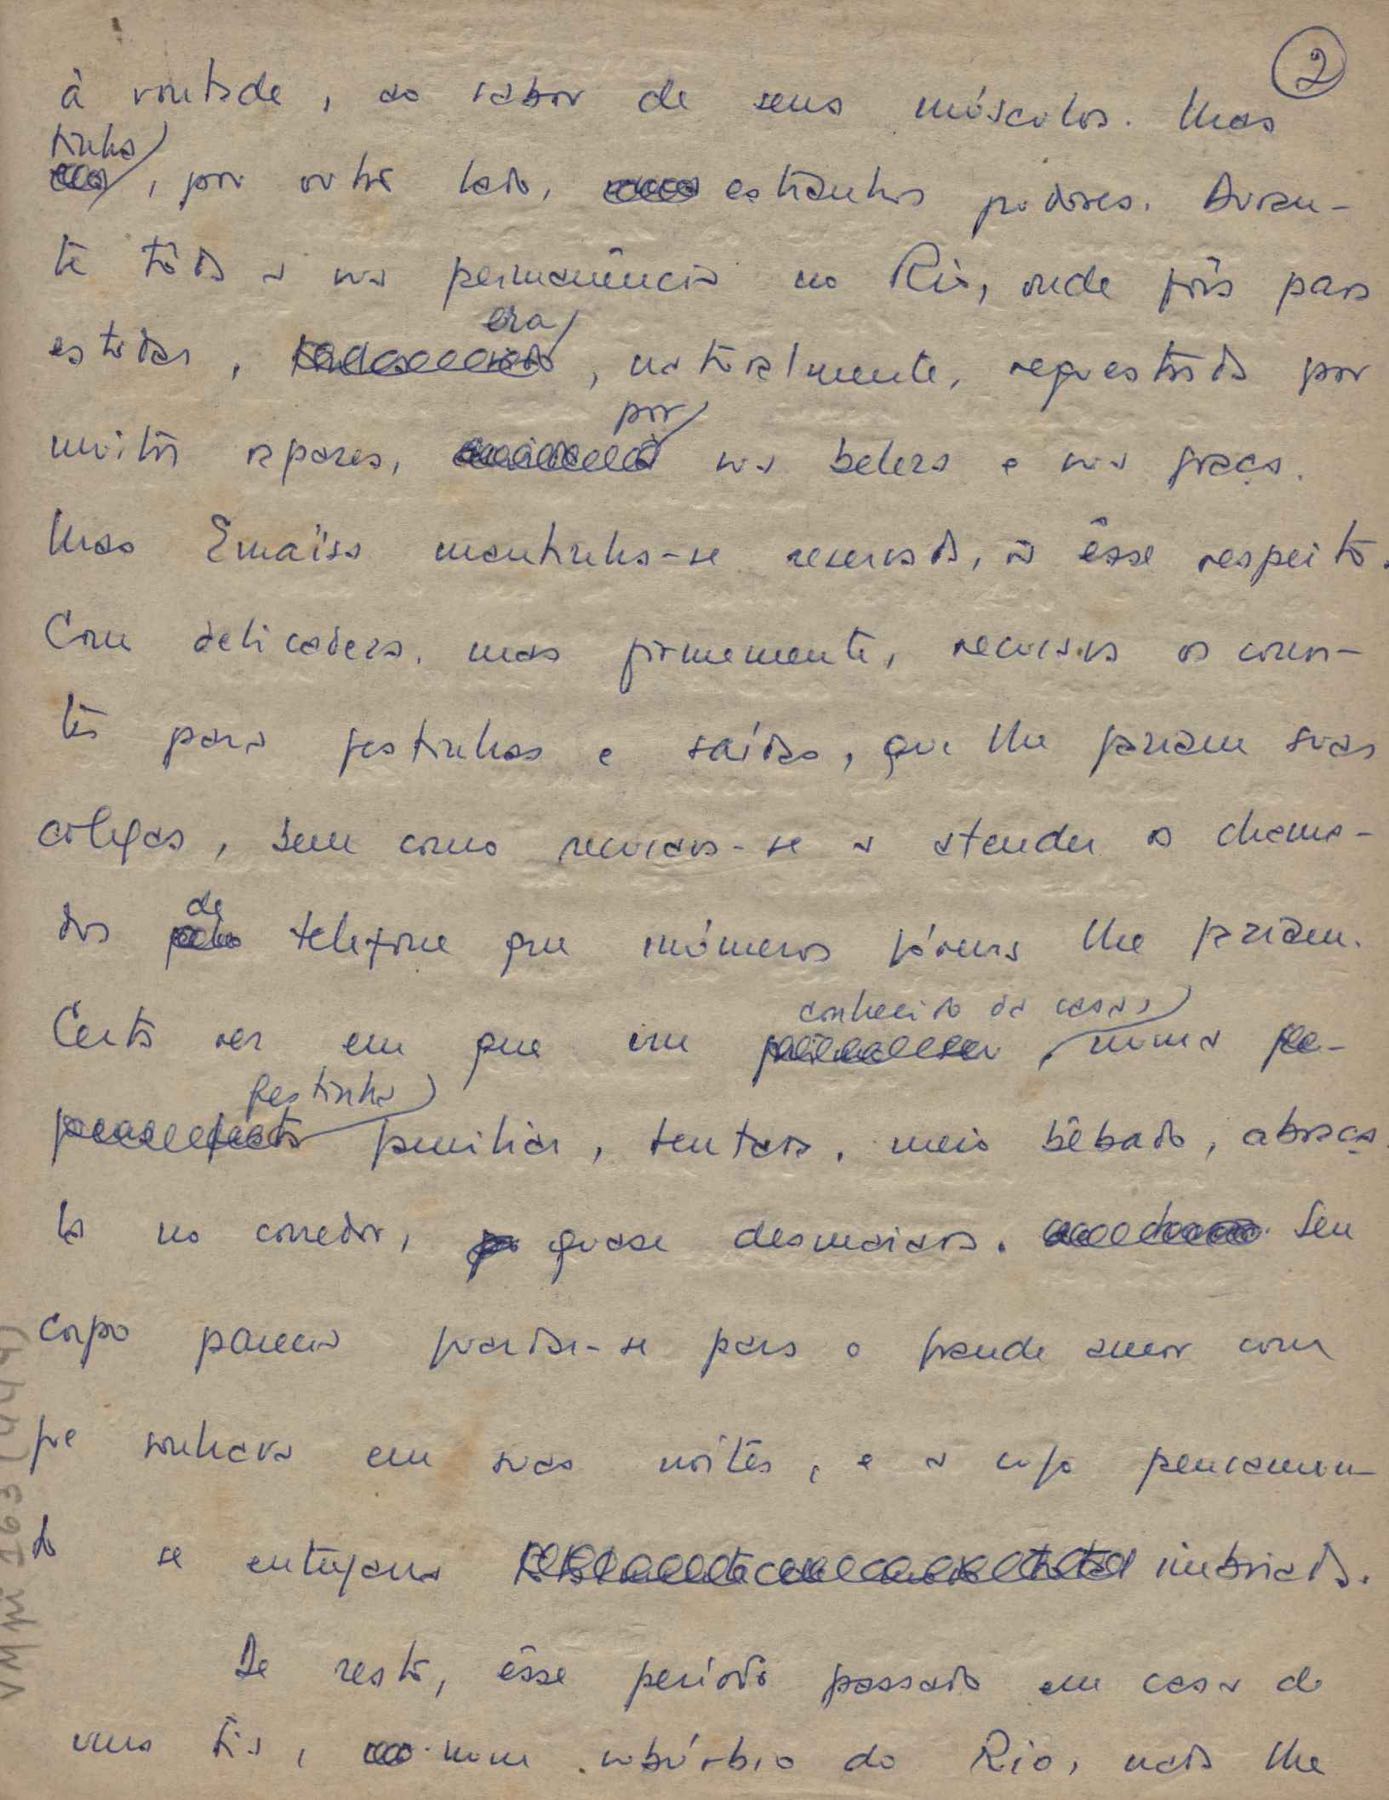 2
à vontade, ao sabor de seus músculos. Mas
tinha
, por outro lado, estranhos pudores. Duran-
te tôda a sua permanência no Rio, onde fôra para
era
estudar, , naturalmente, requestada por
por
muitos rapazes, sua beleza e sua graça.
Mas Emaïsa mantinha-se reservada, a êsse respeito.
Com delicadeza, mas firmemente, recusava os convi-
tes para festinhas e saídas, que lhe faziam suas
colegas, bem como recusava-se a atender os chama-
de
dos telefone que inúmeros jóvens lhe faziam.
conhecido da casa,
Certa vez em que um , numa
festinha
familiar, tentara, meio bêbado, abraçá-
la no corredor, quase desmaiara. Seu
corpo parecia guardar-se para o grande amor com
que sonhava em suas noites, e a cujo pensamen-
to se entregava inebriada.
De resto, êsse período passado em casa de
uma tia, num subúrbio do Rio, nada lhe
VMpi 163 (444)